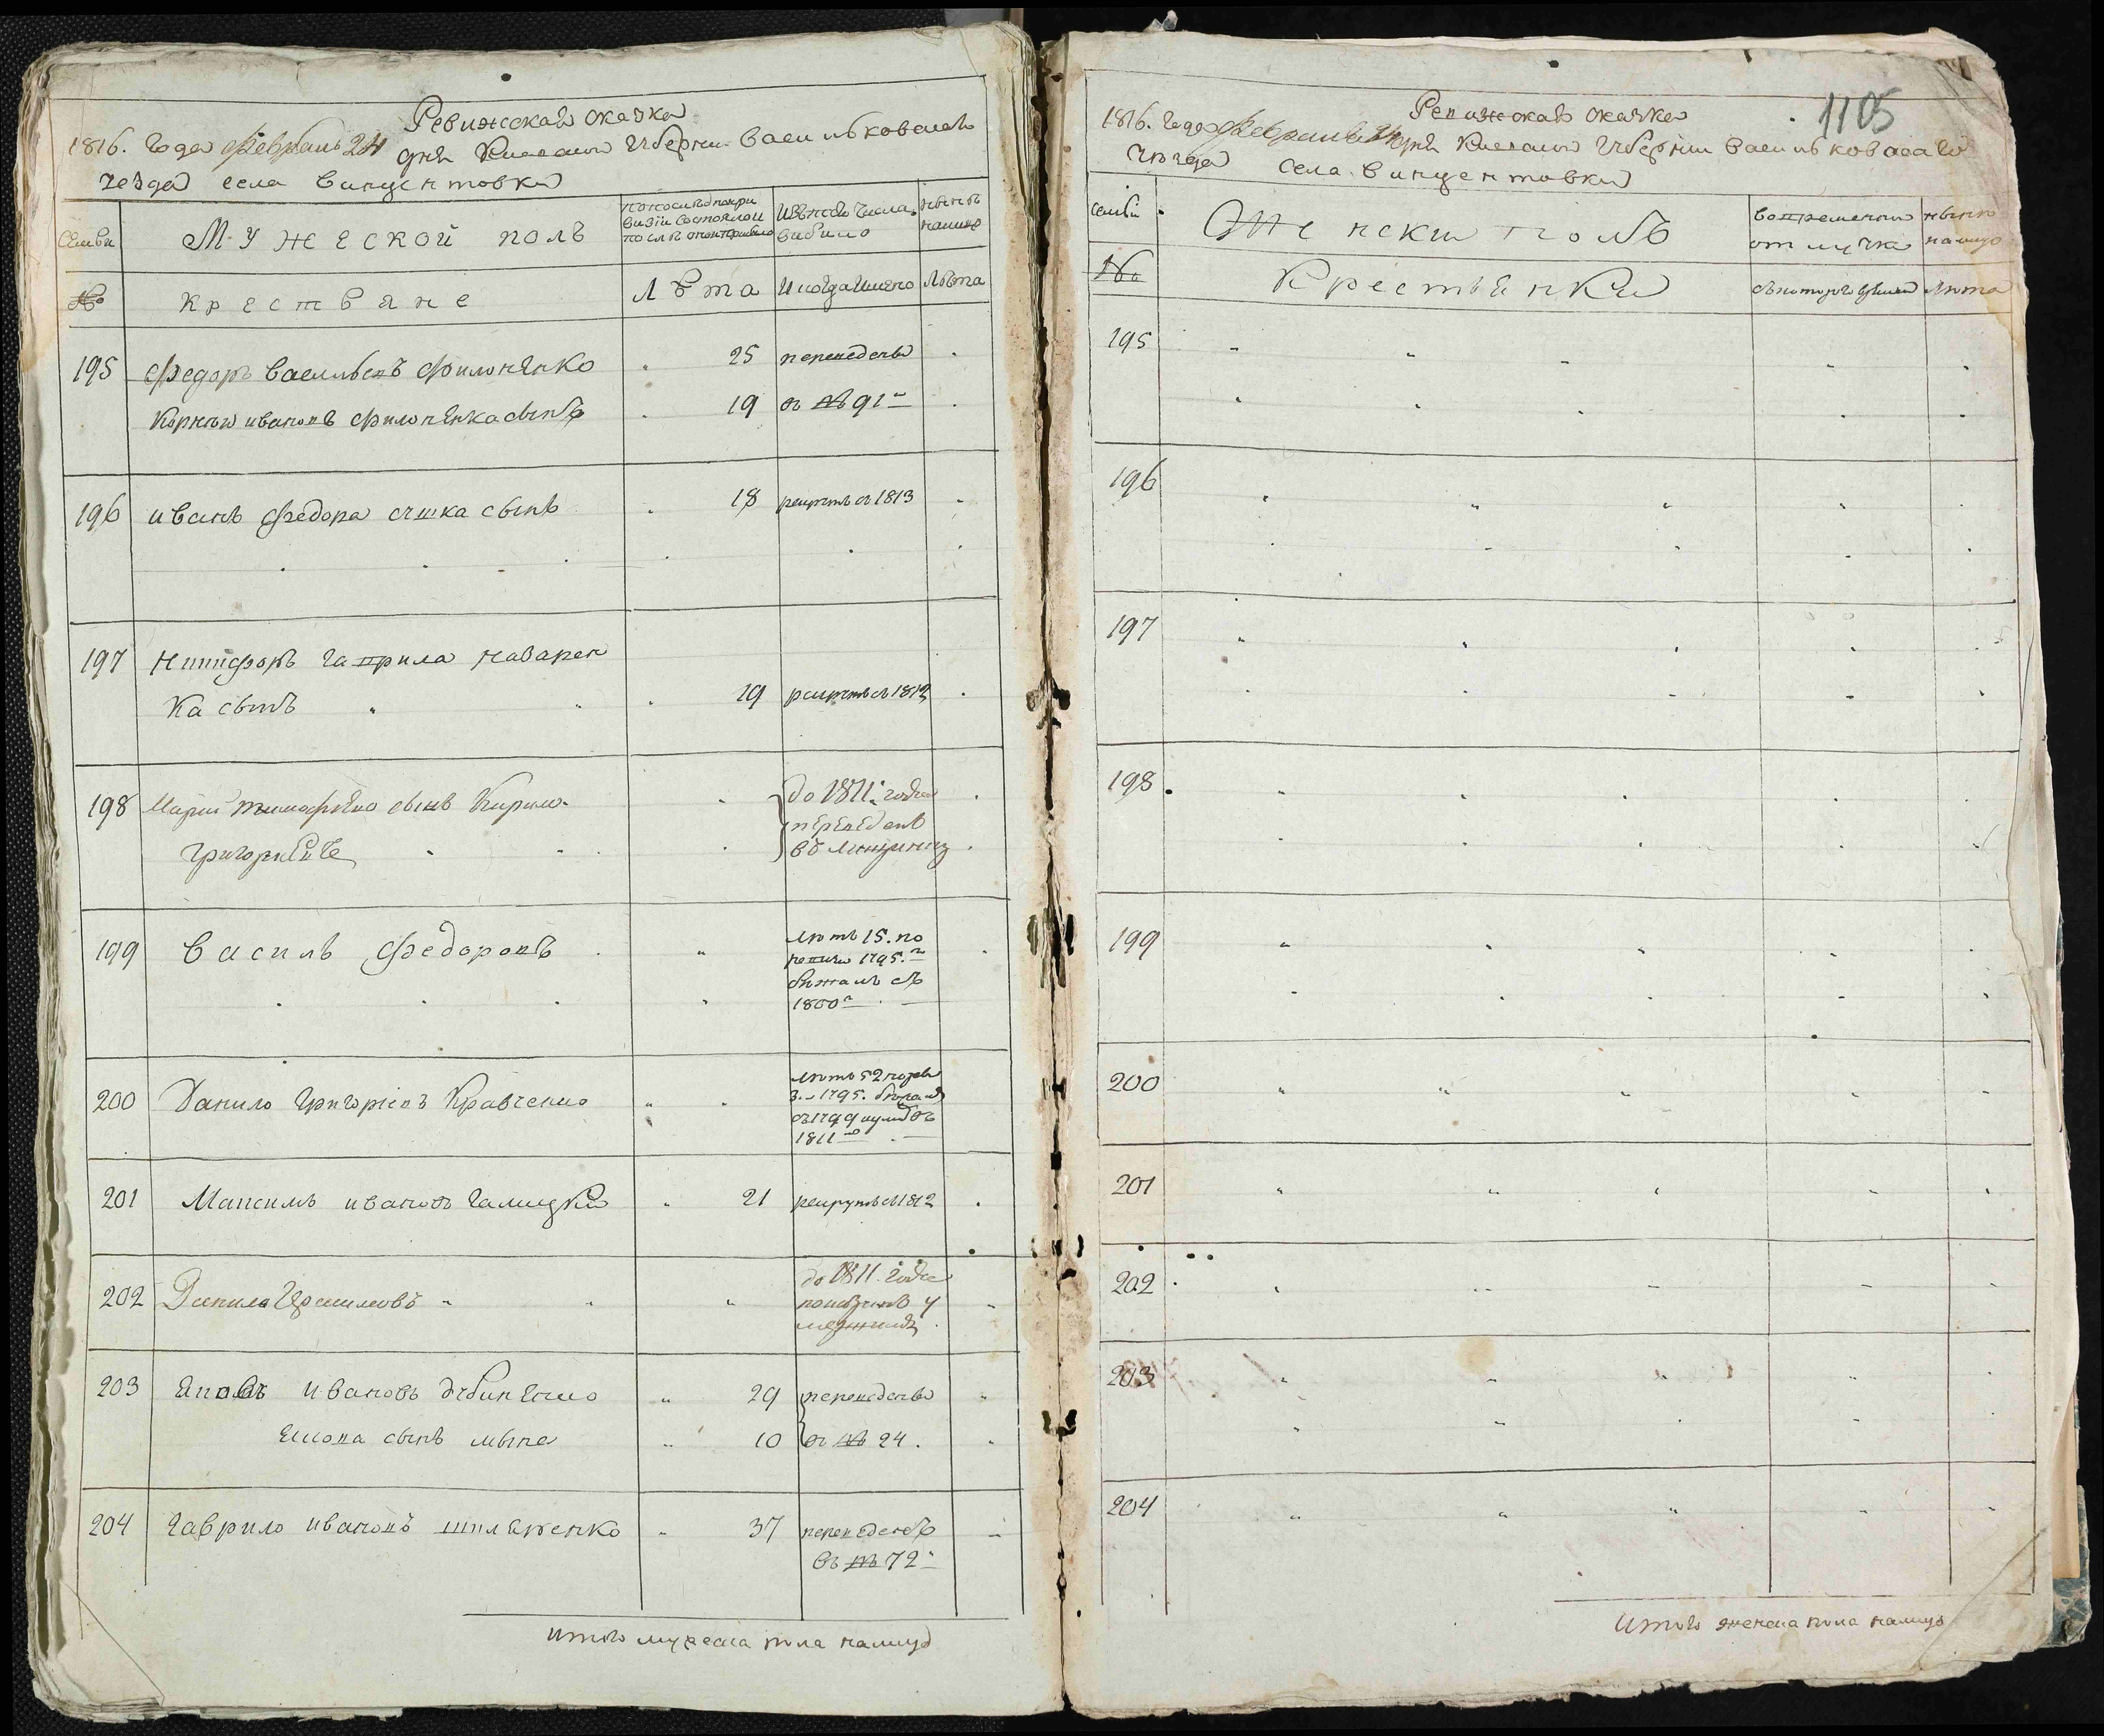 Ревижская скаска
1816. года февраля 24 дня Киевской губернии Васильковскаго
уезда села Винцентовки
семьи
Мужеской полъ
по последней ревизии состояло и
после оной прибыло
Изъ того числа
выбыло
ныне
налицо
№
Крестьяне
Лета
И когда имено
Лета
195 Федоръ Васильевъ Филоненко 25 переведены
Корней Ивановъ Филоненка сынъ 19 въ № 91
196 Иванъ Федора сушка сынъ 18 рекрутъ съ 1813
197 Никифоръ Гаврила Назарен
ка сынъ 19 рекрутъ съ 1812
198 Тимофеева сынъ Кирило до 1811 года
Григориевъ переведенъ
въ
199 Василь Федоровъ летъ 15. по
ревизии 1795.
бежалъ съ
1800
200 Данило Григориевъ Кравченко летъ 52 по реви
з. 1795.
съ 1799
1811
201 Максимъ Ивановъ Галицкий 21 рекрутъ съ 1812
202 Данило до 1811 года
показанъ у
203 Яковъ Ивановъ Дубиненко 29 переведены
Якова сынъ 10 въ № 24.
204 Гаврило Ивановъ Шиляженко 37 переведенъ
въ № 72
Итого мужеска пола налицо
1105
Ревижская скаска
1816. года февраля 24 дня Киевской губернии Васильковскаго
уезда села Винцентовки
семьи
Женский полъ
во временной
отлучке
ныне
налицо
№
Крестьянки
съ котораго времени
лета
195
196
197
198
199
200
201
202
203
204
Итого женска пола налицо